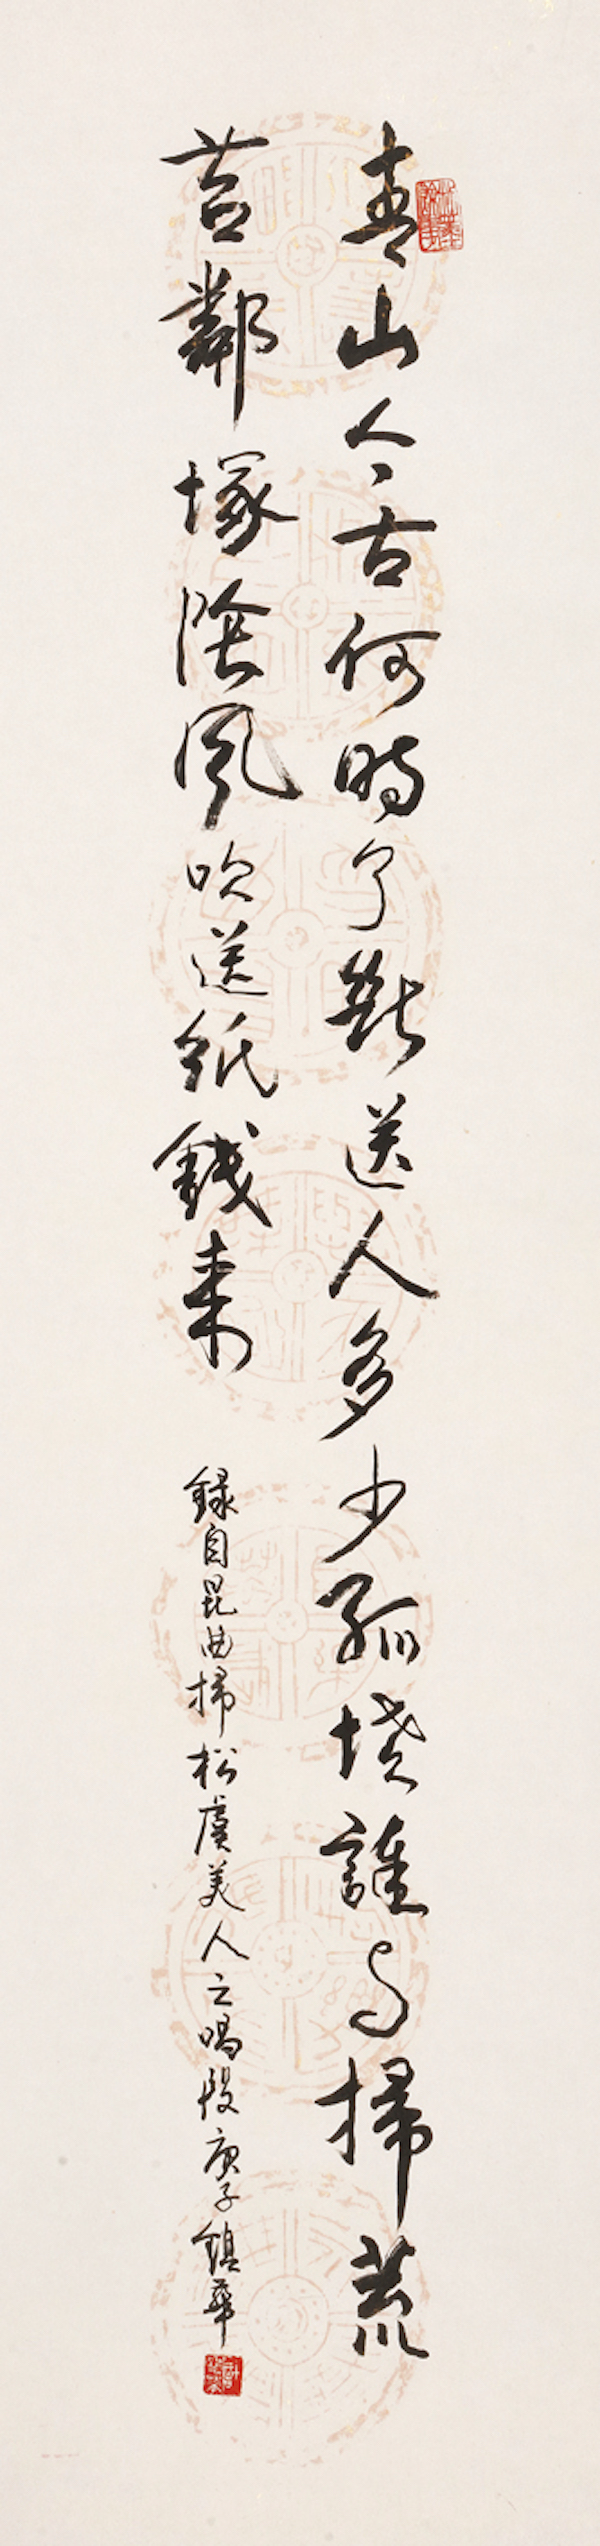 青山今古何時了斷送人多少孤墳誰与掃荒
苔鄰塚陰風吹送紙錢来
錄自昆曲掃松虞美人之唱段庚子鎮華